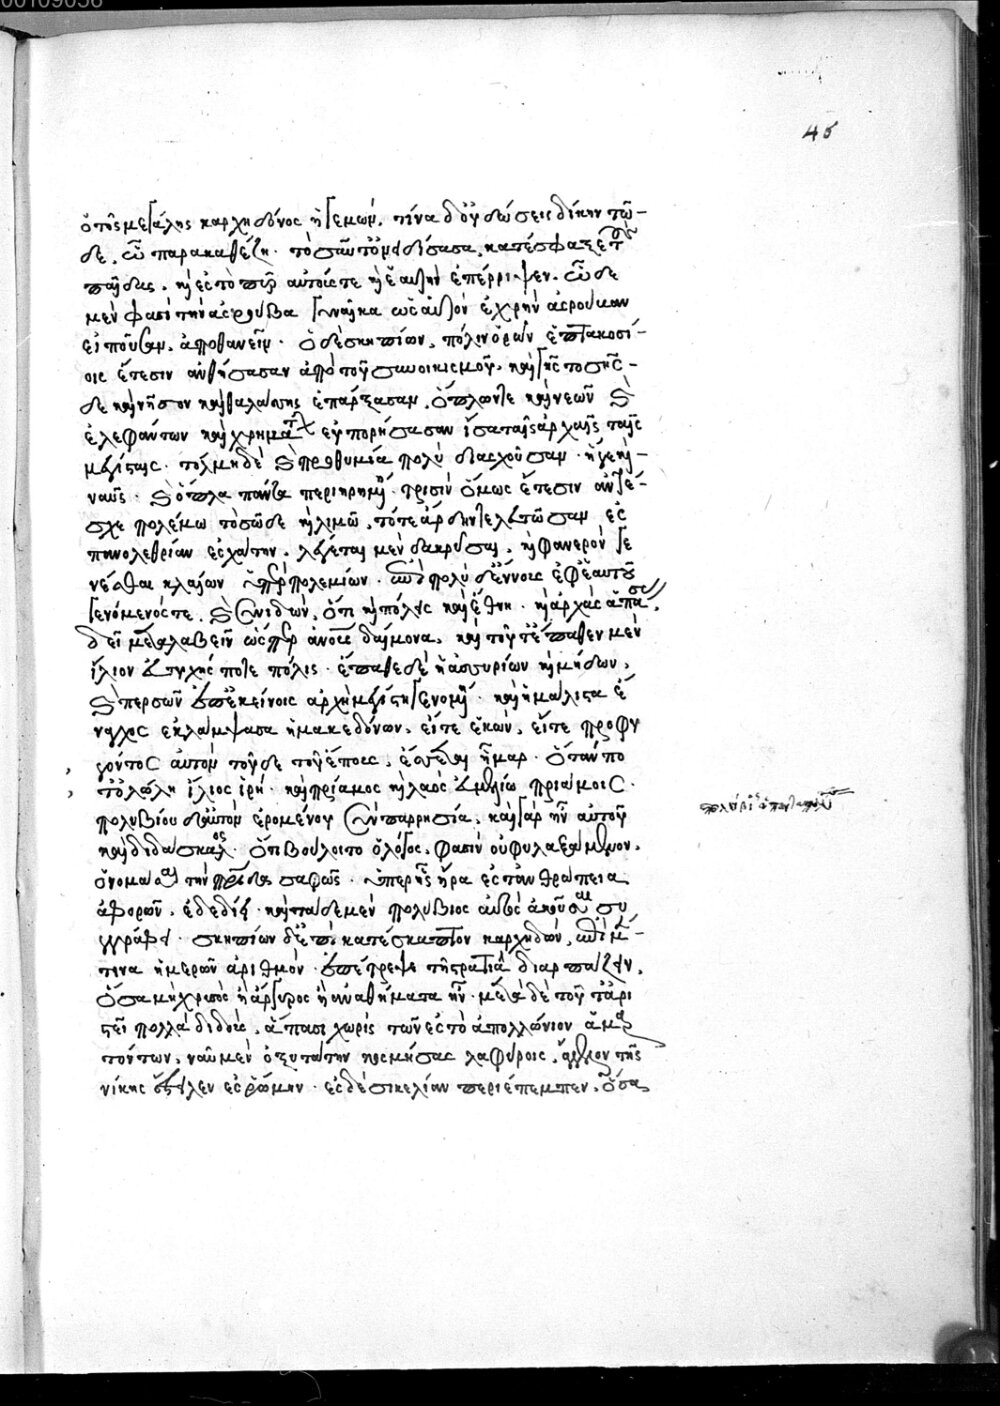 00109058
45
ὁ τῆς μεγάλης καρχηδόνος ἡγεμών, τίνα δ' οὐ δώσεις δίκην τῶ-
δε, ᾧ παρακαθέζῃ. τοσαῦτ' ὀνειδίσασα, κατέσφαξε τοὺς
παῖδας, καὶ ἐς τὸ πῦρ αὐτούς τε καὶ ἑαυτὴν ἐπέρριψεν. ὧδε
μέν φασι τὴν ἀσρούβα γυναῖκα ὡς αὐτὸν ἐχρῆν ἀσρούβαν
εἰποῦσαν, ἀποθανεῖν. ὁ δὲ σκηπίων, πόλιν ὁρῶν ἑπτακοσί-
οις ἔτεσιν ἀνθήσασαν ἀπὸ τοῦ συνοικισμοῦ, καὶ γῆς τοσῆσ-
δε καὶ νήσων καὶ θαλάσσης ἐπάρξασαν, ὅπλων τε καὶ νεῶν καὶ
ἐλεφάντων καὶ χρημάτων εὐπορήσασαν ἴσα ταῖς ἀρχαῖς ταῖς
μεγίσταις. τόλμῃ δὲ καὶ προθυμίᾳ πολὺ διασχοῦσαν. ἥ γε καὶ
ναῦς καὶ ὅπλα πάντα περιῃρημένη τρισὶν ὅμως ἔτεσιν ἀντέ-
σχε πολέμω τοσῶδε καὶ λιμῶ, τότε ἄρδην τελευτῶσαν ἐς
πανολεθρίαν ἐσχάτην. λέγεται μὲν δακρῦσαι, καὶ φανερὸν γε
νέσθαι κλαίων ὑπὲρ πολεμίων. ἐπὶ πολὺ δ' ἔννους ἐφ' ἑαυτοῦ
γενόμενός τε, καὶ συνιδών, ὅτι καὶ πόλεις καὶ ἔθνη καὶ ἀρχὰς ἁπάσας
δεῖ μεταλαβεῖν ὥσπερ ἀνθρώπους δαίμονα, καὶ τοῦτ' ἔπαθεν μὲν
ἴλιον εὐτυχής ποτε πόλις. ἔπαθε δὲ ἡ ἀσσυρίων καὶ μήδων,
καὶ περσῶν ἐπ' ἐκείνοις ἀρχὴ μεγίστη γενομένη. καὶ ἡ μάλιστα ἔ
ναγχος ἐκλάμψασα ἡ μακεδόνων. εἴτε ἑκών, εἴτε προφυ
γόντος αὐτὸν τοῦδε τοῦ ἔπους, ἔσσεται ἦμαρ. ὅταν πο
τ' ὀλώλῃ ἴλιος ἱρή. καὶ πρίαμος καὶ λαὸς ἐυμμελίω πριάμοιο.
πολυβίου δ' αὐτὸν ἐρομένου σὺν παρρησίᾳ, καὶ γὰρ ἦν αὐτοῦ
καὶ διδάσκαλος. ὅ τι βούλοιτο ὁ λόγος. φασὶν οὐ φυλαξάμενον,
ὀνομάσαι τὴν πατρίδα σαφῶς. ὑπὲρ ἧς ἄρα ἐς τἀνθρώπεια
ἀφορῶν, ἐδεδίει. καὶ τάδε μὲν πολύβιος αὐτὸς ἀκούσας συ
γγράφει. σκηπίων δ' ἐπεὶ κατέσκαπτο καρχηδών, ἐπὶ μέν
τινα ἡμερῶν ἀριθμὸν ἐπέτρεψε τῇ στρατιᾷ διαρπάζειν.
ὅσα μὴ χρυσὸς ἢ ἄργυρος ἢ ἀναθήματα ἦν. μετὰ δὲ τοῦτ' ἀρι
στεῖα πολλὰ διδούς, ἅπασι χωρὶς τῶν ἐς τὸ ἀπολλώνιον ἁμαρ
τόντων, ναῦν μὲν ὀξυτάτην κοσμήσας λαφύροις, ἄγγελον τῆς
νίκης ἔστειλεν ἐς ῥώμην. ἐς δὲ σικελίαν περιέπεμπεν, ὅσα